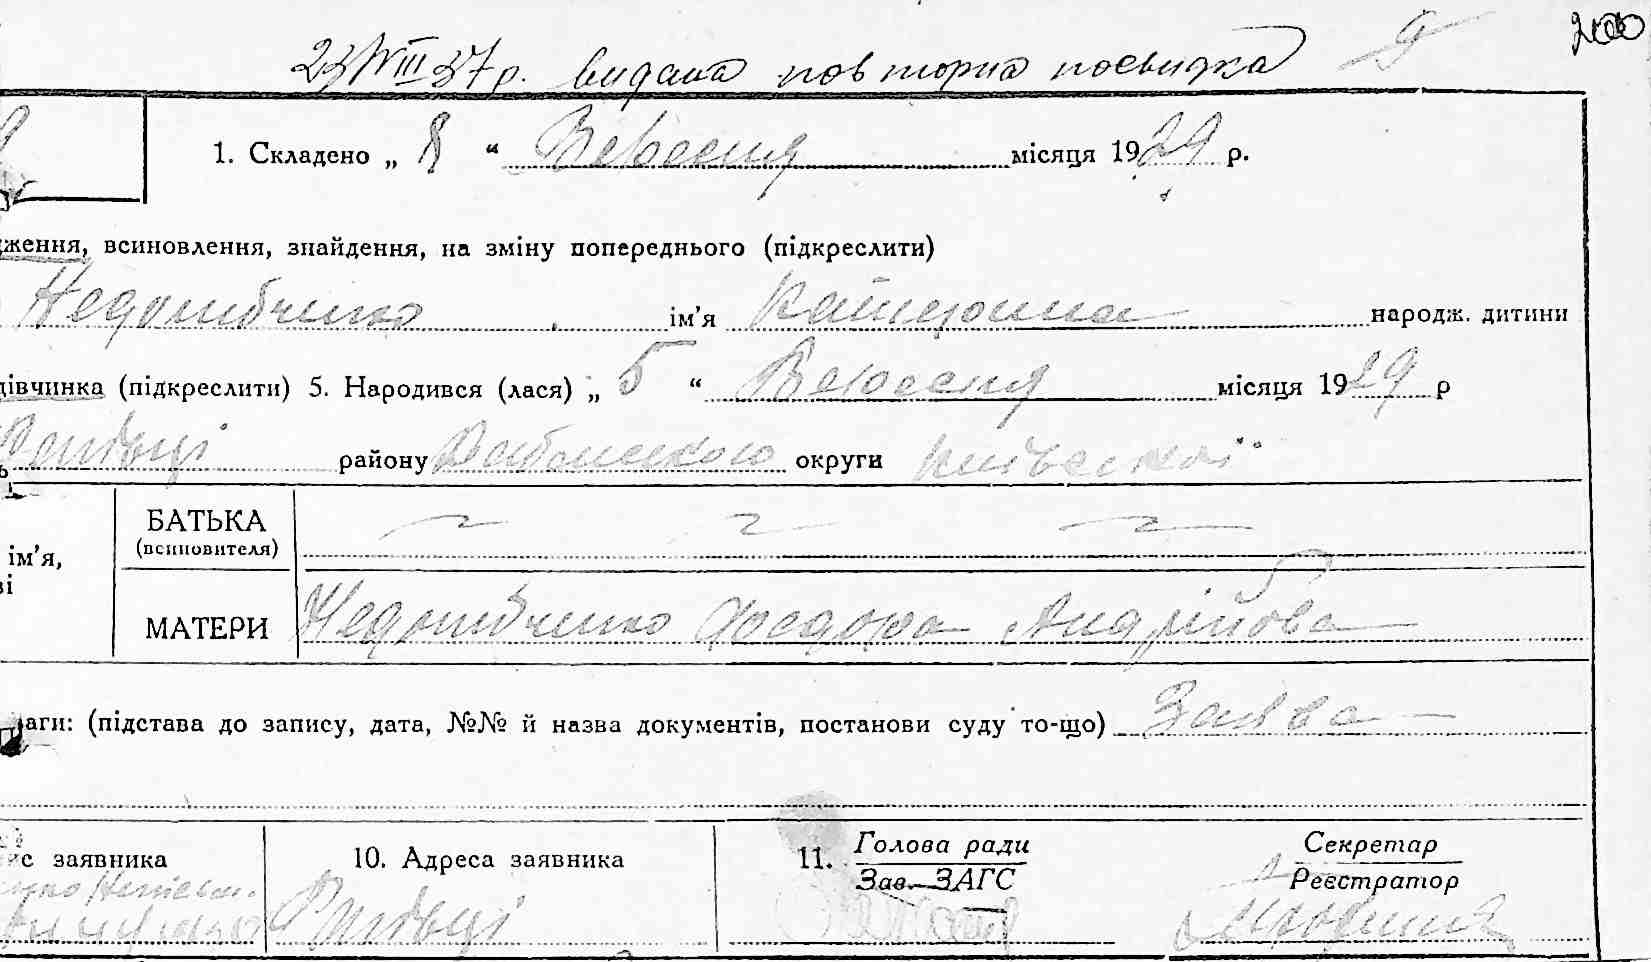 200
23/VIII 37 р. видана повторна посвидка
1. Складено „ 8 “ Вересня місяця 1929 р.
ження, всиновлення, знайдення, на зміну попереднього (підкреслити)
ім’я Катерина народж. дитини
дівчинка (підкреслити) 5. Народився (лася) „ 5 “ Вересня місяця 1929 р
району округи Київської
БАТЬКА
(всиновителя)
ім’я,
ві
МАТЕРИ Федора Андрійова
аги: (підстава до запису, дата, №№ й назва документів, постанови суду то-що) Заява
ис заявника
10. Адреса заявника
11. Голова ради
Зав. ЗАГС
Секретар
Реєстратор